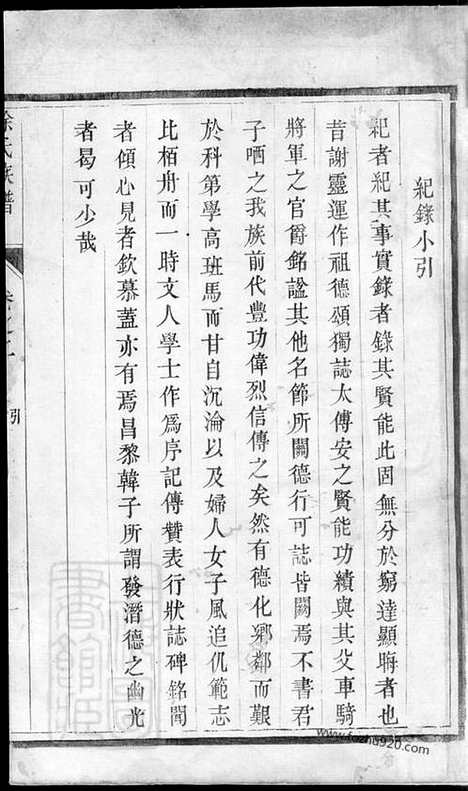 紀錄小引
紀者紀其事實錄者錄其賢能此固無分於窮達顯晦者也
昔謝靈運作祖德頌獨誌太傅安之賢能功績與其父車騎
將軍之官爵銘謚其他名節所關德行可誌皆闕焉不書君
子哂之我族前代豐功偉烈信傳之矣然有德化鄉鄰而艱
於科第學高班馬而甘自沉淪以及婦人女子風追仉範志
比栢舟而一時文人學士作爲序記傳贊表行狀誌碑銘聞
者傾心見者欽慕蓋亦有焉昌黎韓子所謂發潛德之幽光
者曷可少哉
徐氏族譜
卷之
引
www.fozhu920.com